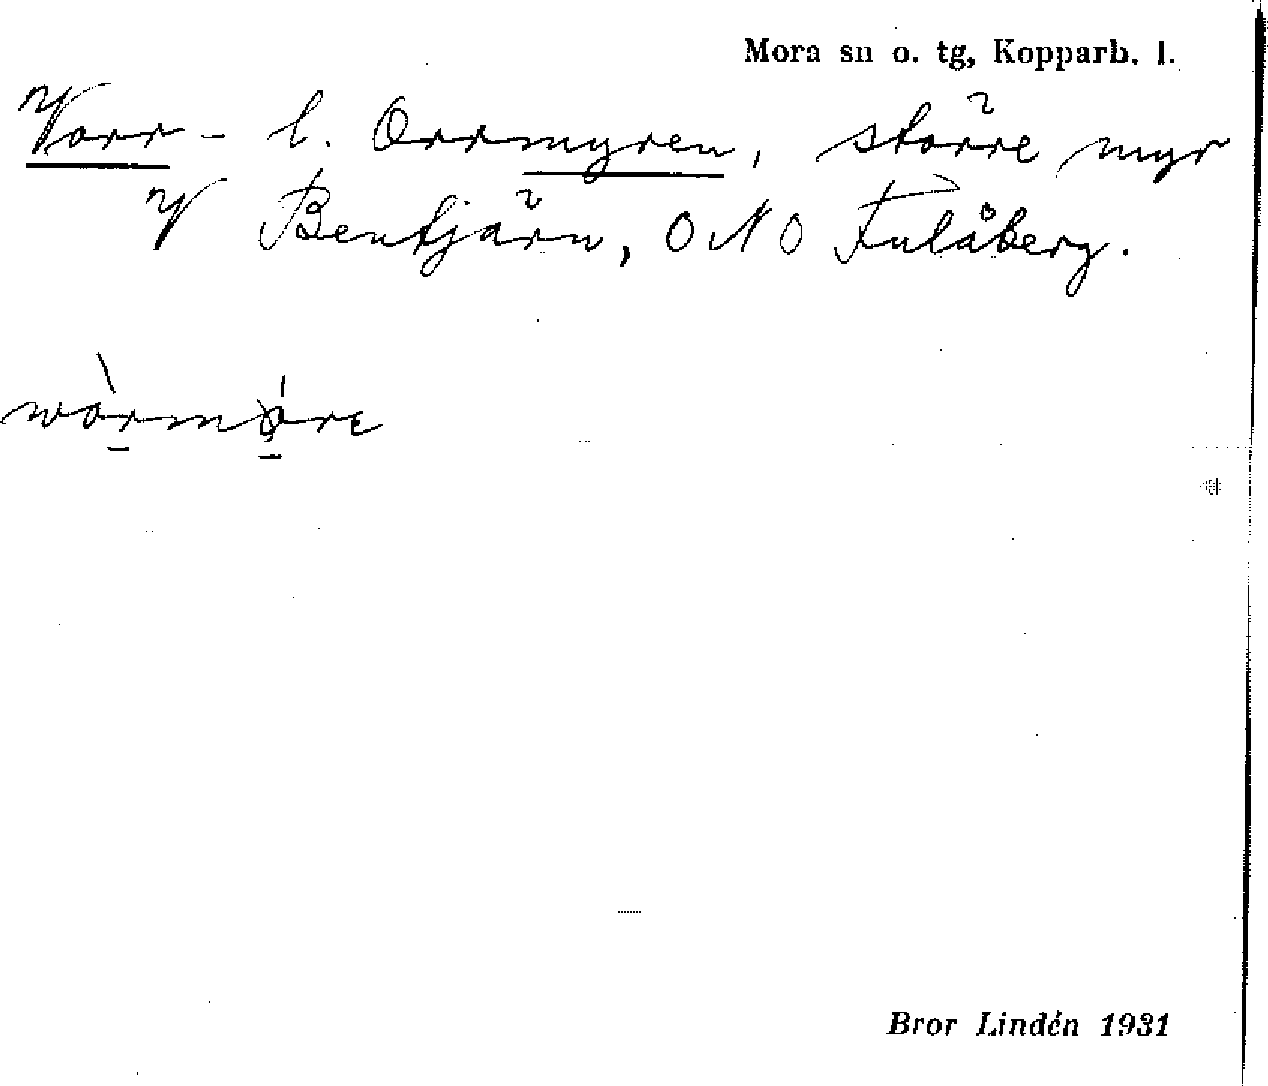 Mora sn o. tg, Kopparb. l.
Vorr- l. Orrmyren, större myr
V Bentjärn, ONO Fulåberg.
wòrmǫ́re
Bror Lindén 1931